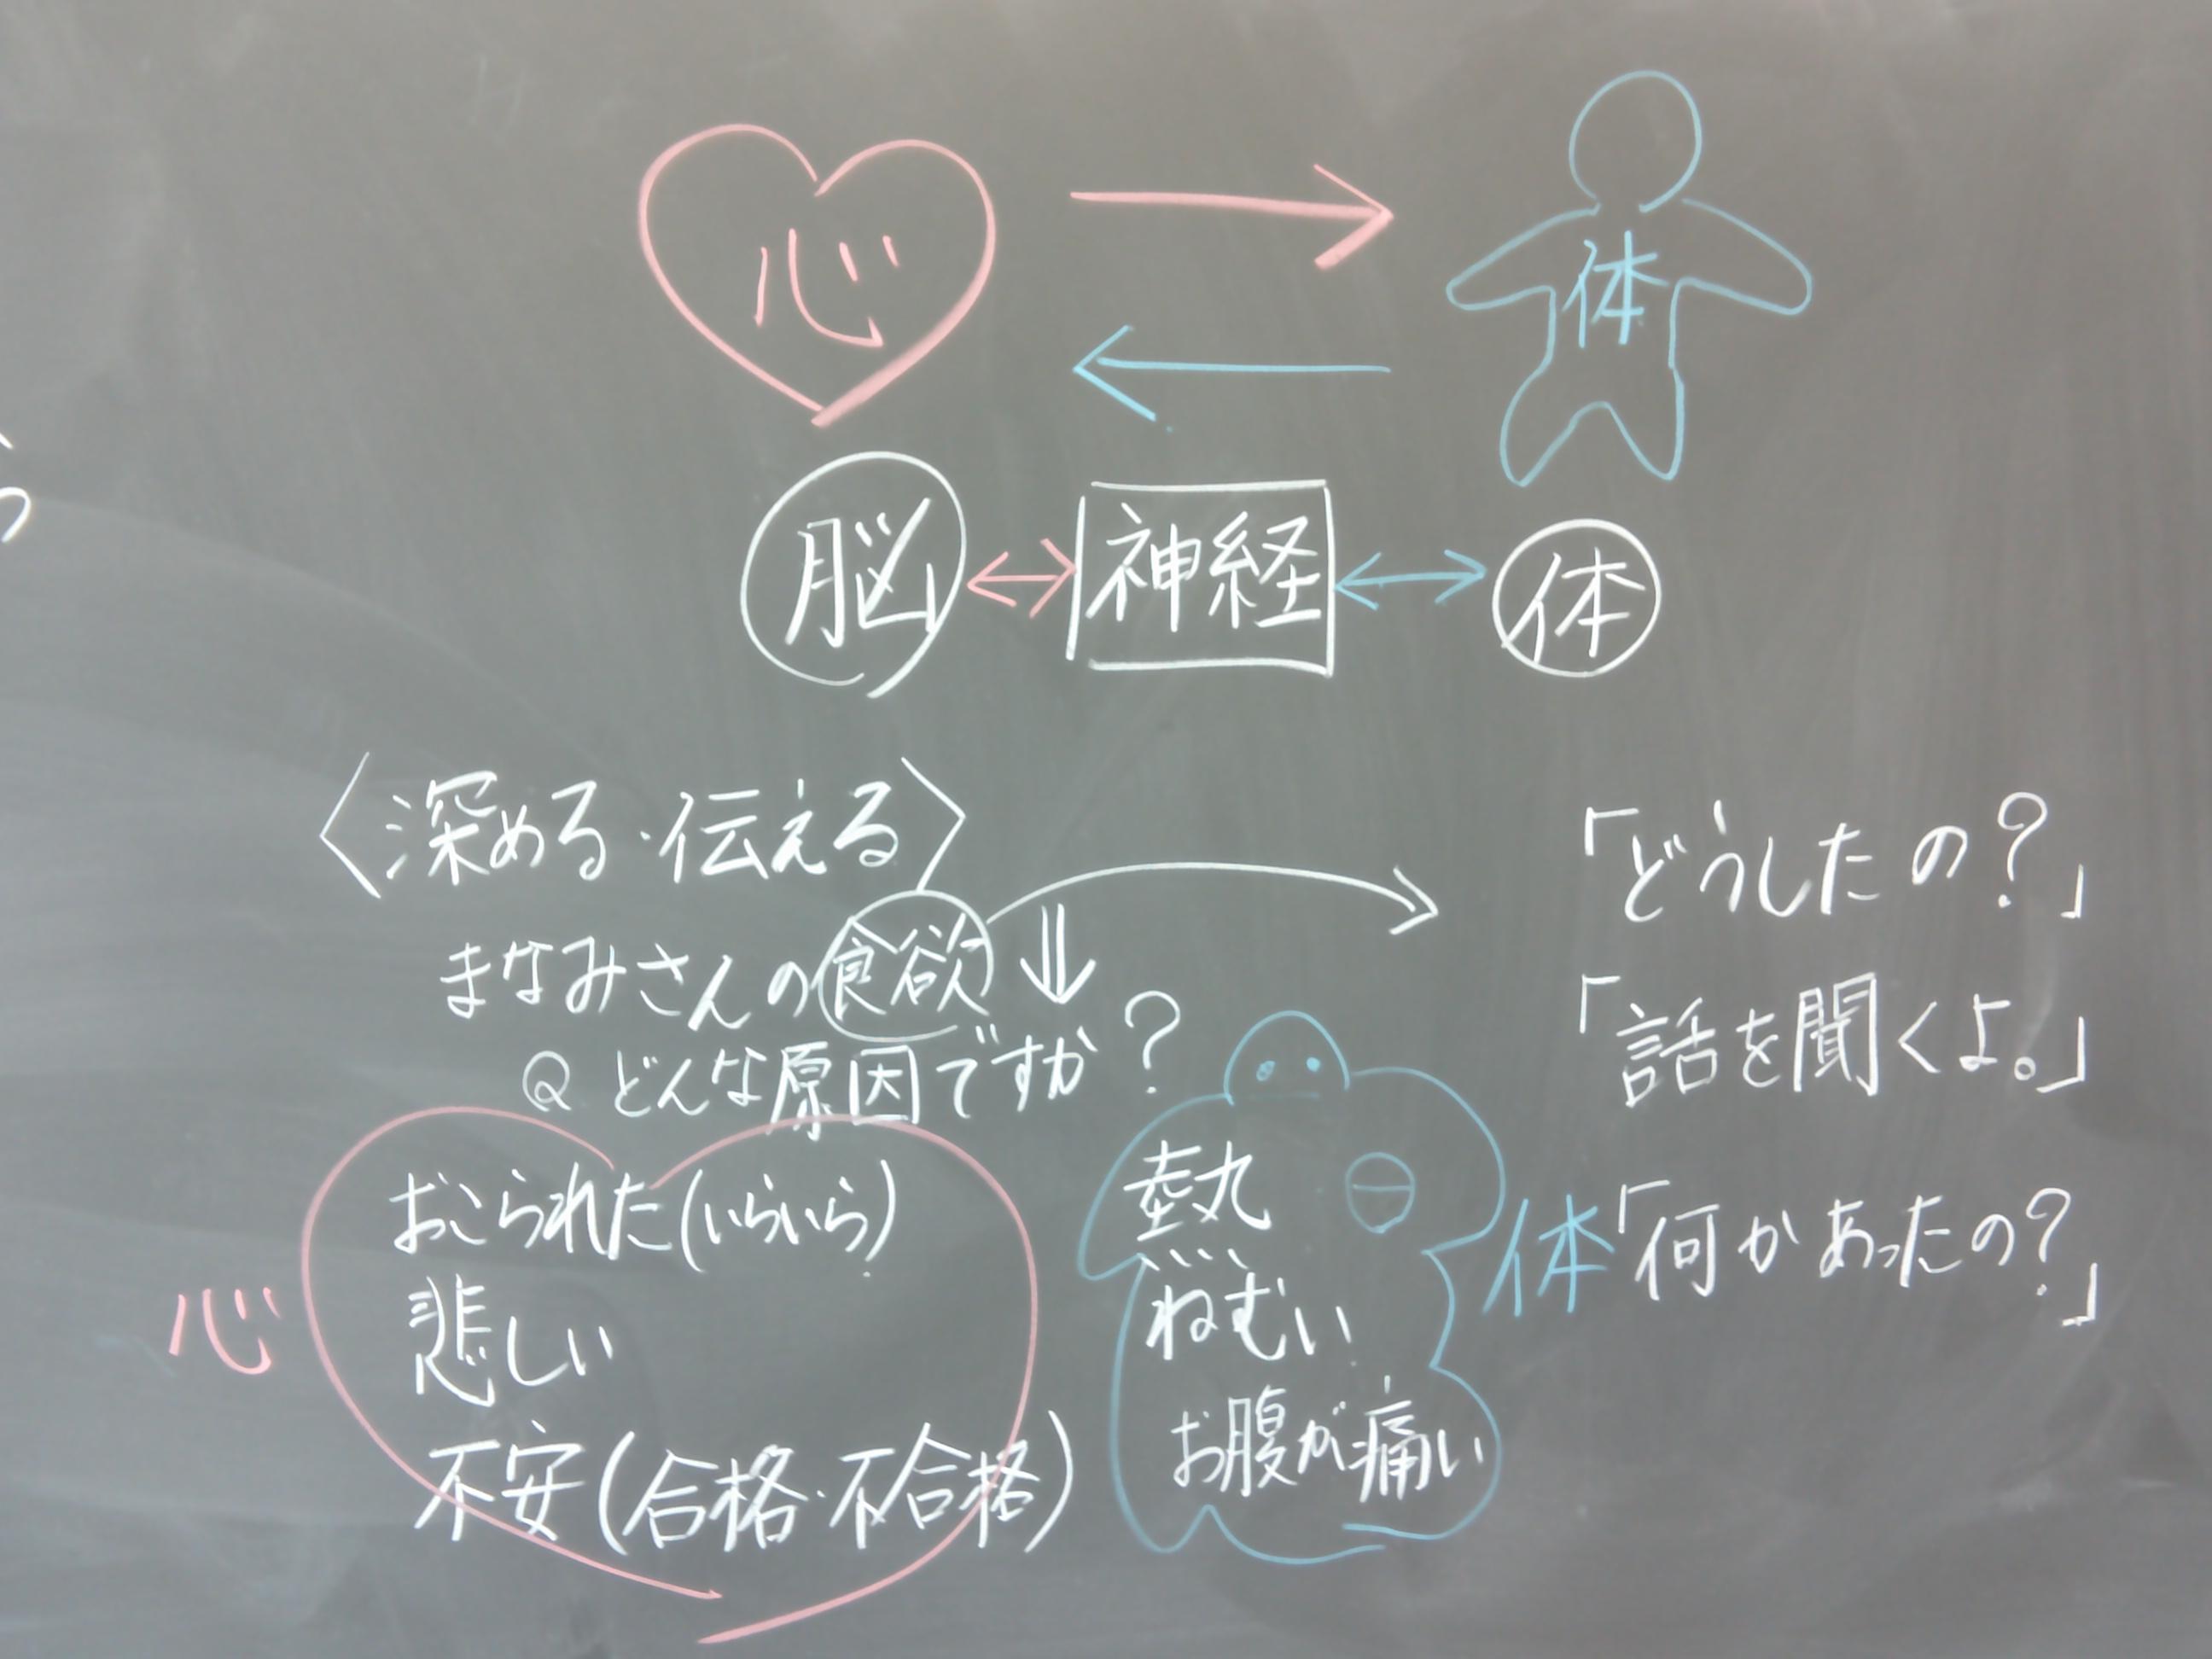 心
体
脳 ↔ 神経 ↔ 体
〈深める・伝える〉
まなみさんの食欲 ⇓
Q どんな原因ですか?
心
おこられた(いらいら)
悲しい
不安(合格・不合格)
体
熱
ねむい
お腹が痛い
「どうしたの?」
「話を聞くよ。」
「何かあったの?」